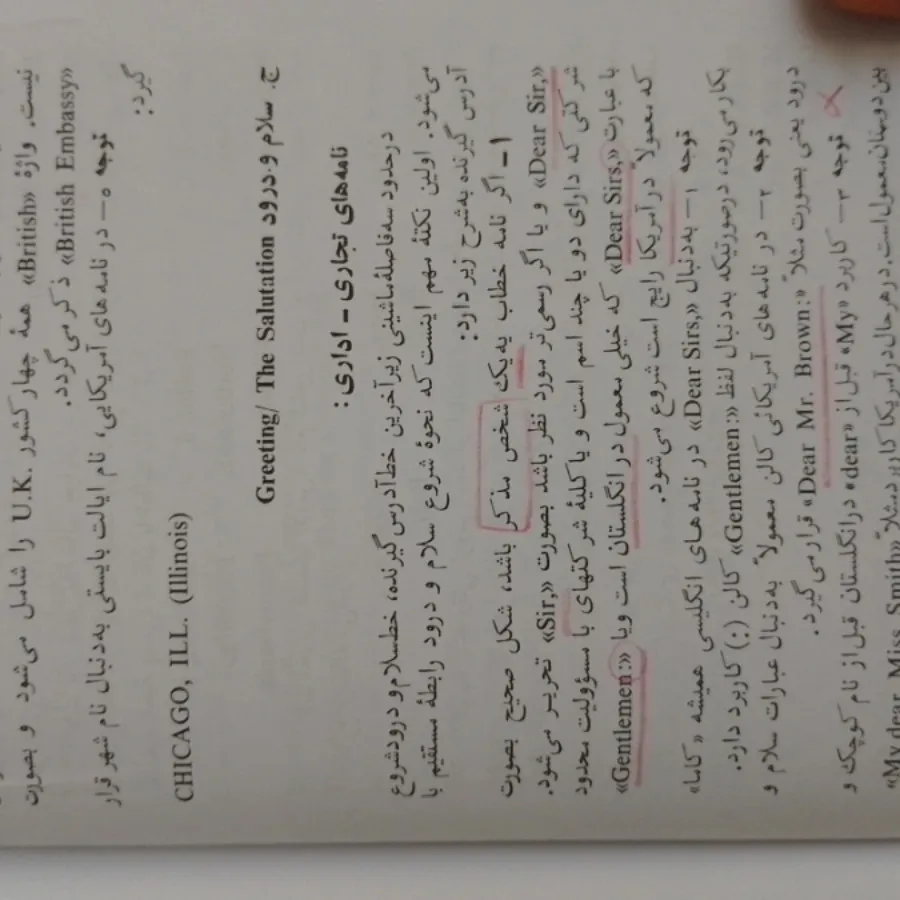 نیست. واژهٔ «British» همهٔ چهار کشور U.K. را شامل می‌شود و بصورت
«British Embassy» ذکر می‌گردد.
توجه ۵ – در نامه‌های آمریکایی، نام ایالت بایستی به‌دنبال نام شهر قرار
گیرد:
CHICAGO, ILL. (Illinois)
ج. سلام و درود Greeting/ The Salutation
نامه‌های تجاری – اداری :
درحدود سه‌فاصلهٔ ماشینی زیر آخرین خط آدرس گیرنده، خط سلام و درود شروع
می‌شود. اولین نکتهٔ مهم اینست که نحوهٔ شروع سلام و درود رابطهٔ مستقیم با
آدرس گیرنده بشرح زیر دارد:
۱ – اگر نامه خطاب به یک شخص مذکر باشد، شکل صحیح بصورت
«Dear Sir,» و یا اگر رسمی‌تر مورد نظر باشد بصورت «Sir,» تحریر می‌شود.
شرکتی که دارای دو یا چند اسم است و یا کلیهٔ شرکتهای با مسؤولیت محدود
با عبارت «Dear Sirs,» که خیلی معمول در انگلستان است ویا «Gentlemen:»
که معمولاً درآمریکا رایج است شروع می‌شود.
توجه ۱ – به‌دنبال «Dear Sirs,» در نامه‌های انگلیسی همیشه «کاما»
بکار می‌رود، درصورتیکه به‌دنبال لفظ «Gentlemen:» کالن (:) کاربرد دارد.
توجه ۲ – در نامه‌های آمریکائی کالن معمولاً به‌دنبال عبارات سلام و
درود یعنی بصورت مثلاً «Dear Mr. Brown:» قرار می‌گیرد.
توجه ۳ – کاربرد «My» قبل از «dear» درانگلستان قبل از نام کوچک و
بین دوستان معمول است. درهرحال درآمریکا کاربرد مثلاً «My dear Miss Smith»